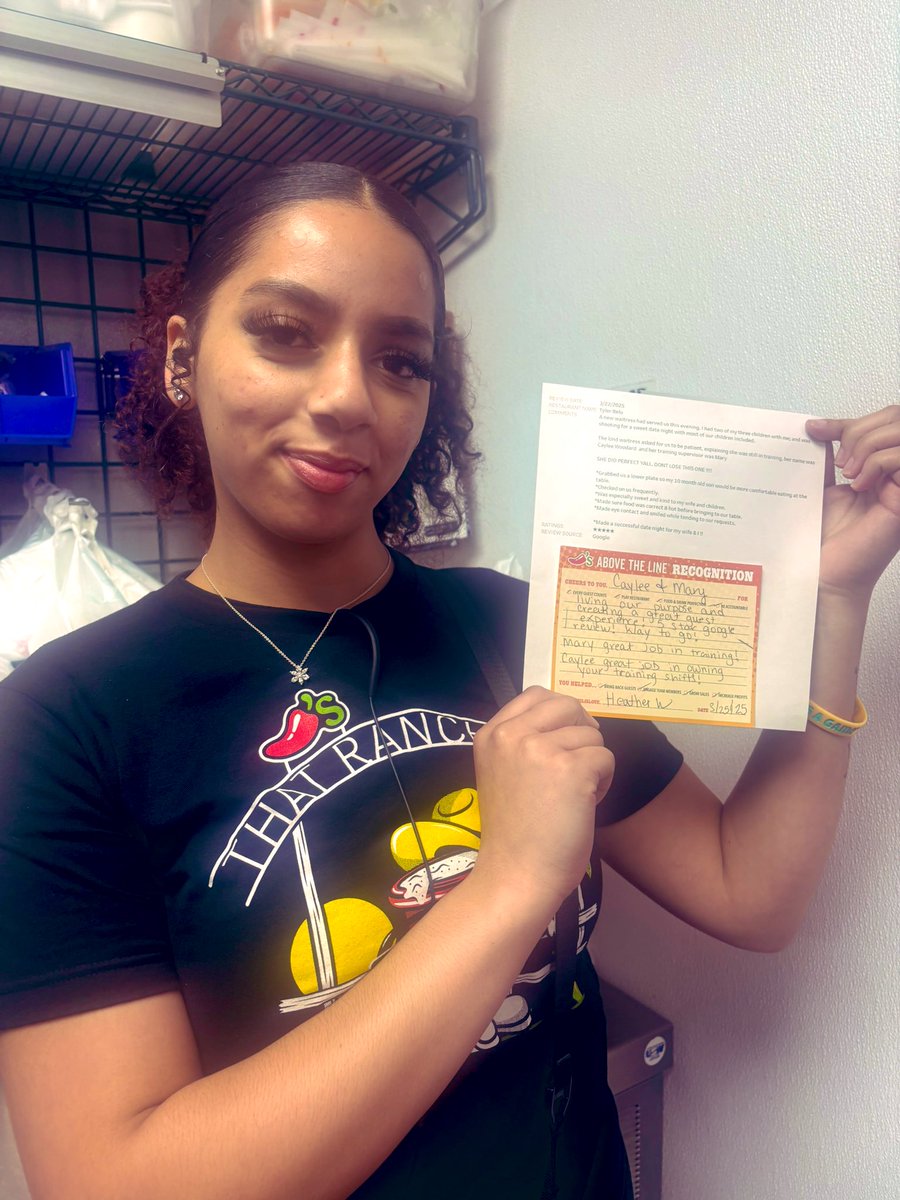 REVIEW DATE 3/22/2025
RESTAURANT
Tyler
COMMENTS
A new waitress had served us this evening. I had two of my three children with me and was
shooting for a sweet date night with most of our children included.
The kind waitress asked for us to be patient, explaining she was still in training, her name was
Caylee Woodard and her training supervisor was Mary
SHE DID PERFECT YALL, DONT LOSE THIS ONE !!!!
*Grabbed us a lower plate so my 10 month old son would be more comfortable eating at the
table.
*Checked on us frequently.
*Was especially sweet and kind to my wife and children.
*Made sure food was correct & hot before bringing to our table.
*Made eye contact and smiled while tending to our requests.
*Made a successful date night for my wife & I !!
RATINGS ★★★★★
REVIEW SOURCE Google
'S ABOVE THE LINE RECOGNITION
CHEERS TO YOU, Caylee & Mary FOR
EVERY GUEST COUNTS PLAY RESTAURANT FOOD & DRINK PERFECTION BE ACCOUNTABLE
living our purpose and
creating a great guest
experience! 5 star google
review! Way to go!
Mary great job in training!
Caylee great job in owning
your training shift!
YOU HELPED... BRING BACK GUESTS ENGAGE TEAM MEMBERS GROW SALES INCREASE PROFITS
#CHILISLOVE, Heather W DATE 3/25/25
'S
THAT RANCH
A GAM